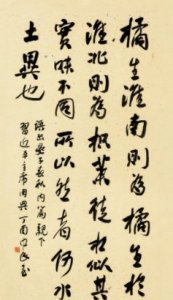 橘生淮南則為橘生於
淮北則為枳葉徒相似其
實味不同所以然者何水
土異也
語出晏子春秋内篇雜下
習近平主席用典丁酉